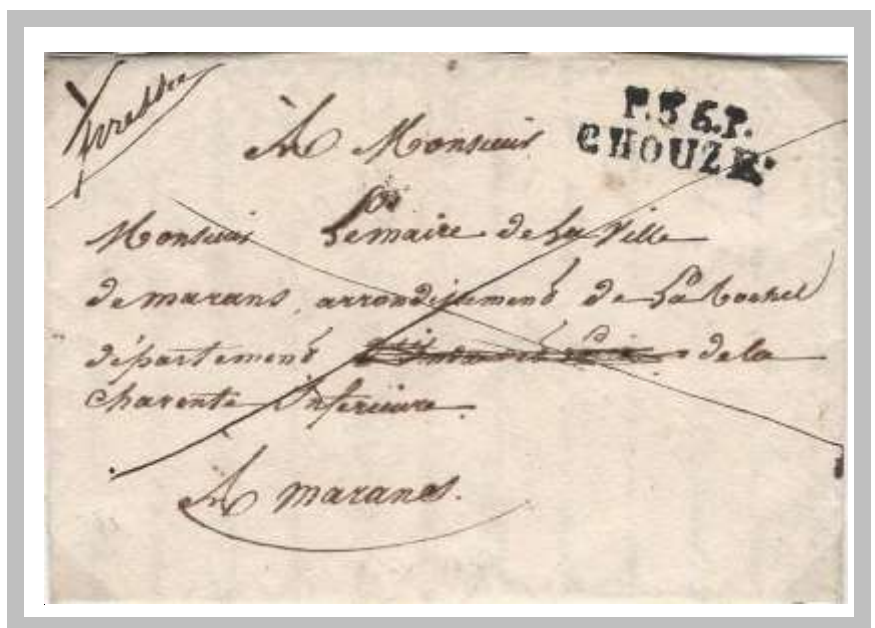 P.36.P.
CHOUZE
A Monsieur
Monsieur Lemaire de La Ville
de marans, arrondissement de La Rochel
département de la
charente Inferieure
A marans.